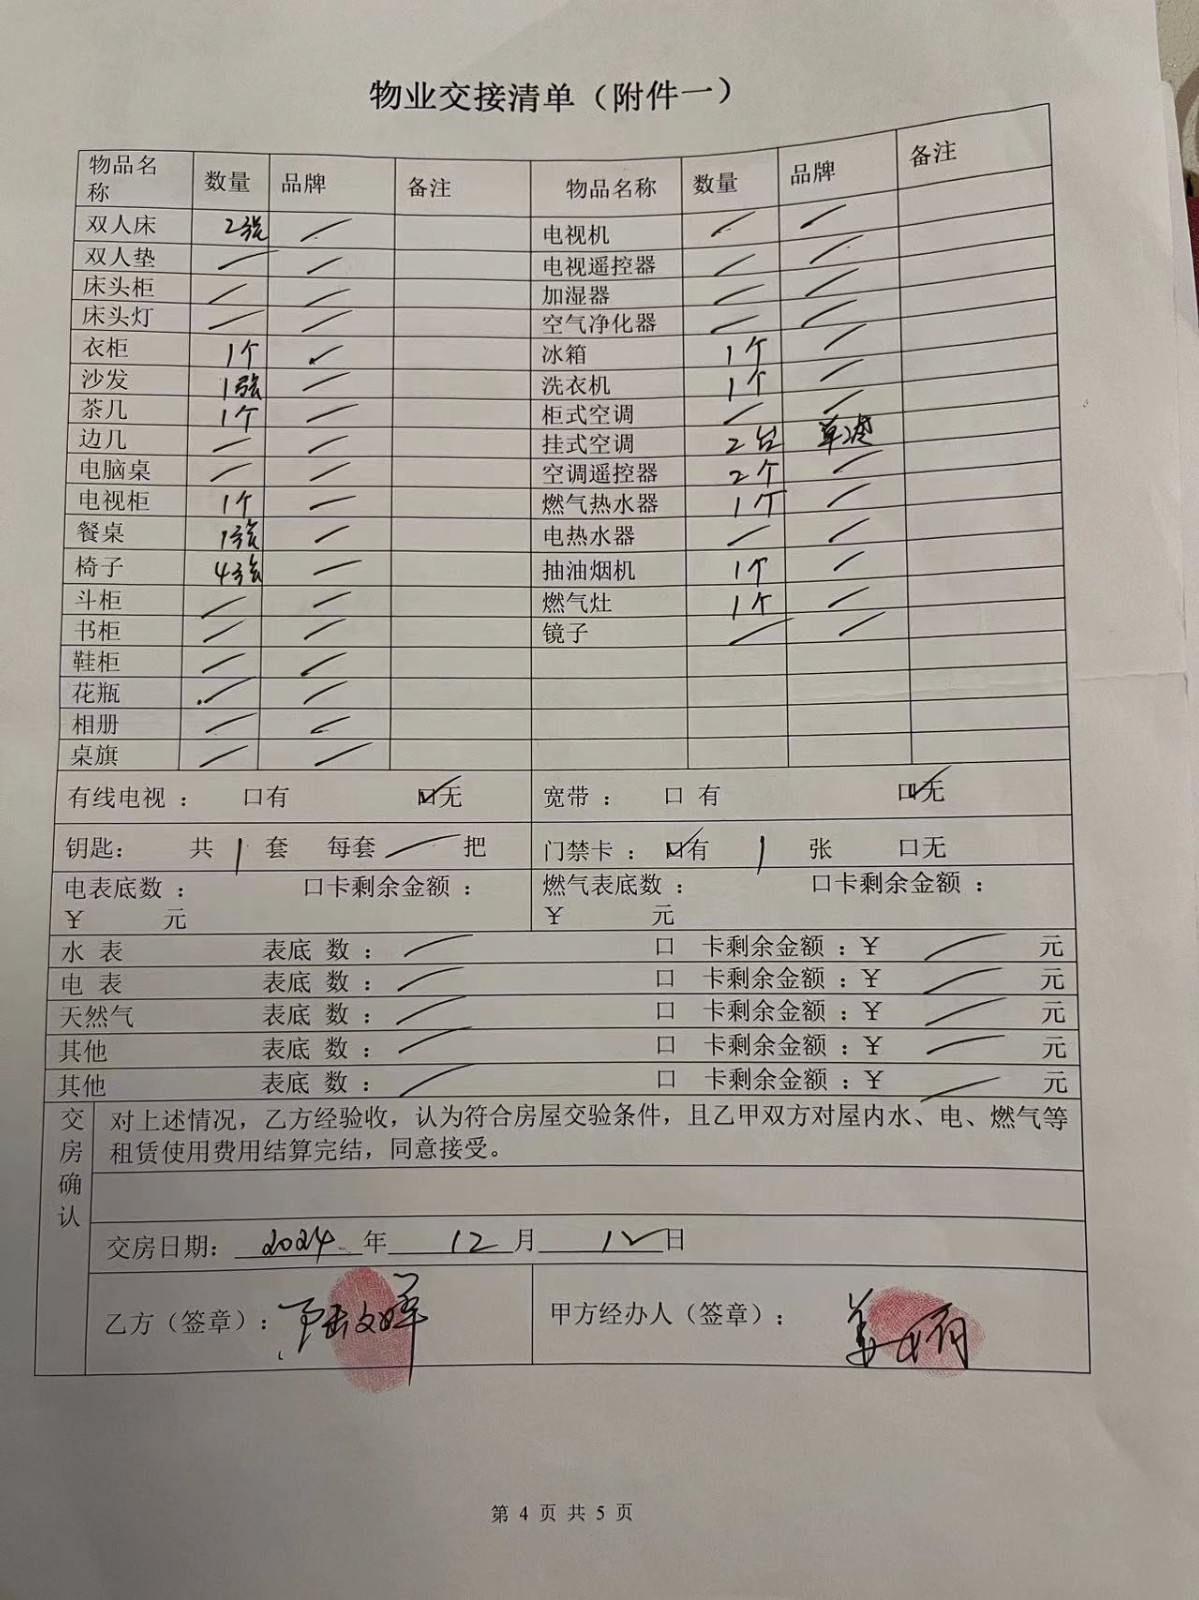 物业交接清单（附件一）
物品名称 数量 品牌 备注 物品名称 数量 品牌 备注
双人床 2张 / 电视机 / /
双人垫 / / 电视遥控器 / /
床头柜 / / 加湿器 / /
床头灯 / / 空气净化器 / /
衣柜 1个 / 冰箱 1个 /
沙发 1张 / 洗衣机 1个 /
茶几 1个 / 柜式空调 / /
边几 / / 挂式空调 2台
电脑桌 / / 空调遥控器 2个 /
电视柜 1个 / 燃气热水器 1个 /
餐桌 1张 / 电热水器 / /
椅子 4张 / 抽油烟机 1个 /
斗柜 / / 燃气灶 1个 /
书柜 / / 镜子 / /
鞋柜 / /
花瓶 / /
相册 / /
桌旗 / /
有线电视： 口有 ☑无 宽带： 口 有 ☑无
钥匙： 共 1 套 每套 / 把 门禁卡： ☑有 1 张 口无
电表底数： 口卡剩余金额： 燃气表底数： 口卡剩余金额：
¥ 元 ¥ 元
水 表 表底 数： / 口 卡剩余金额：¥ / 元
电 表 表底 数： / 口 卡剩余金额：¥ / 元
天然气 表底 数： / 口 卡剩余金额：¥ / 元
其他 表底 数： / 口 卡剩余金额：¥ / 元
其他 表底 数： / 口 卡剩余金额：¥ / 元
交房确认
对上述情况，乙方经验收，认为符合房屋交验条件，且乙甲双方对屋内水、电、燃气等
租赁使用费用结算完结，同意接受。
交房日期：2024年12月12日
乙方（签章）： 甲方经办人（签章）：
第 4 页 共 5 页